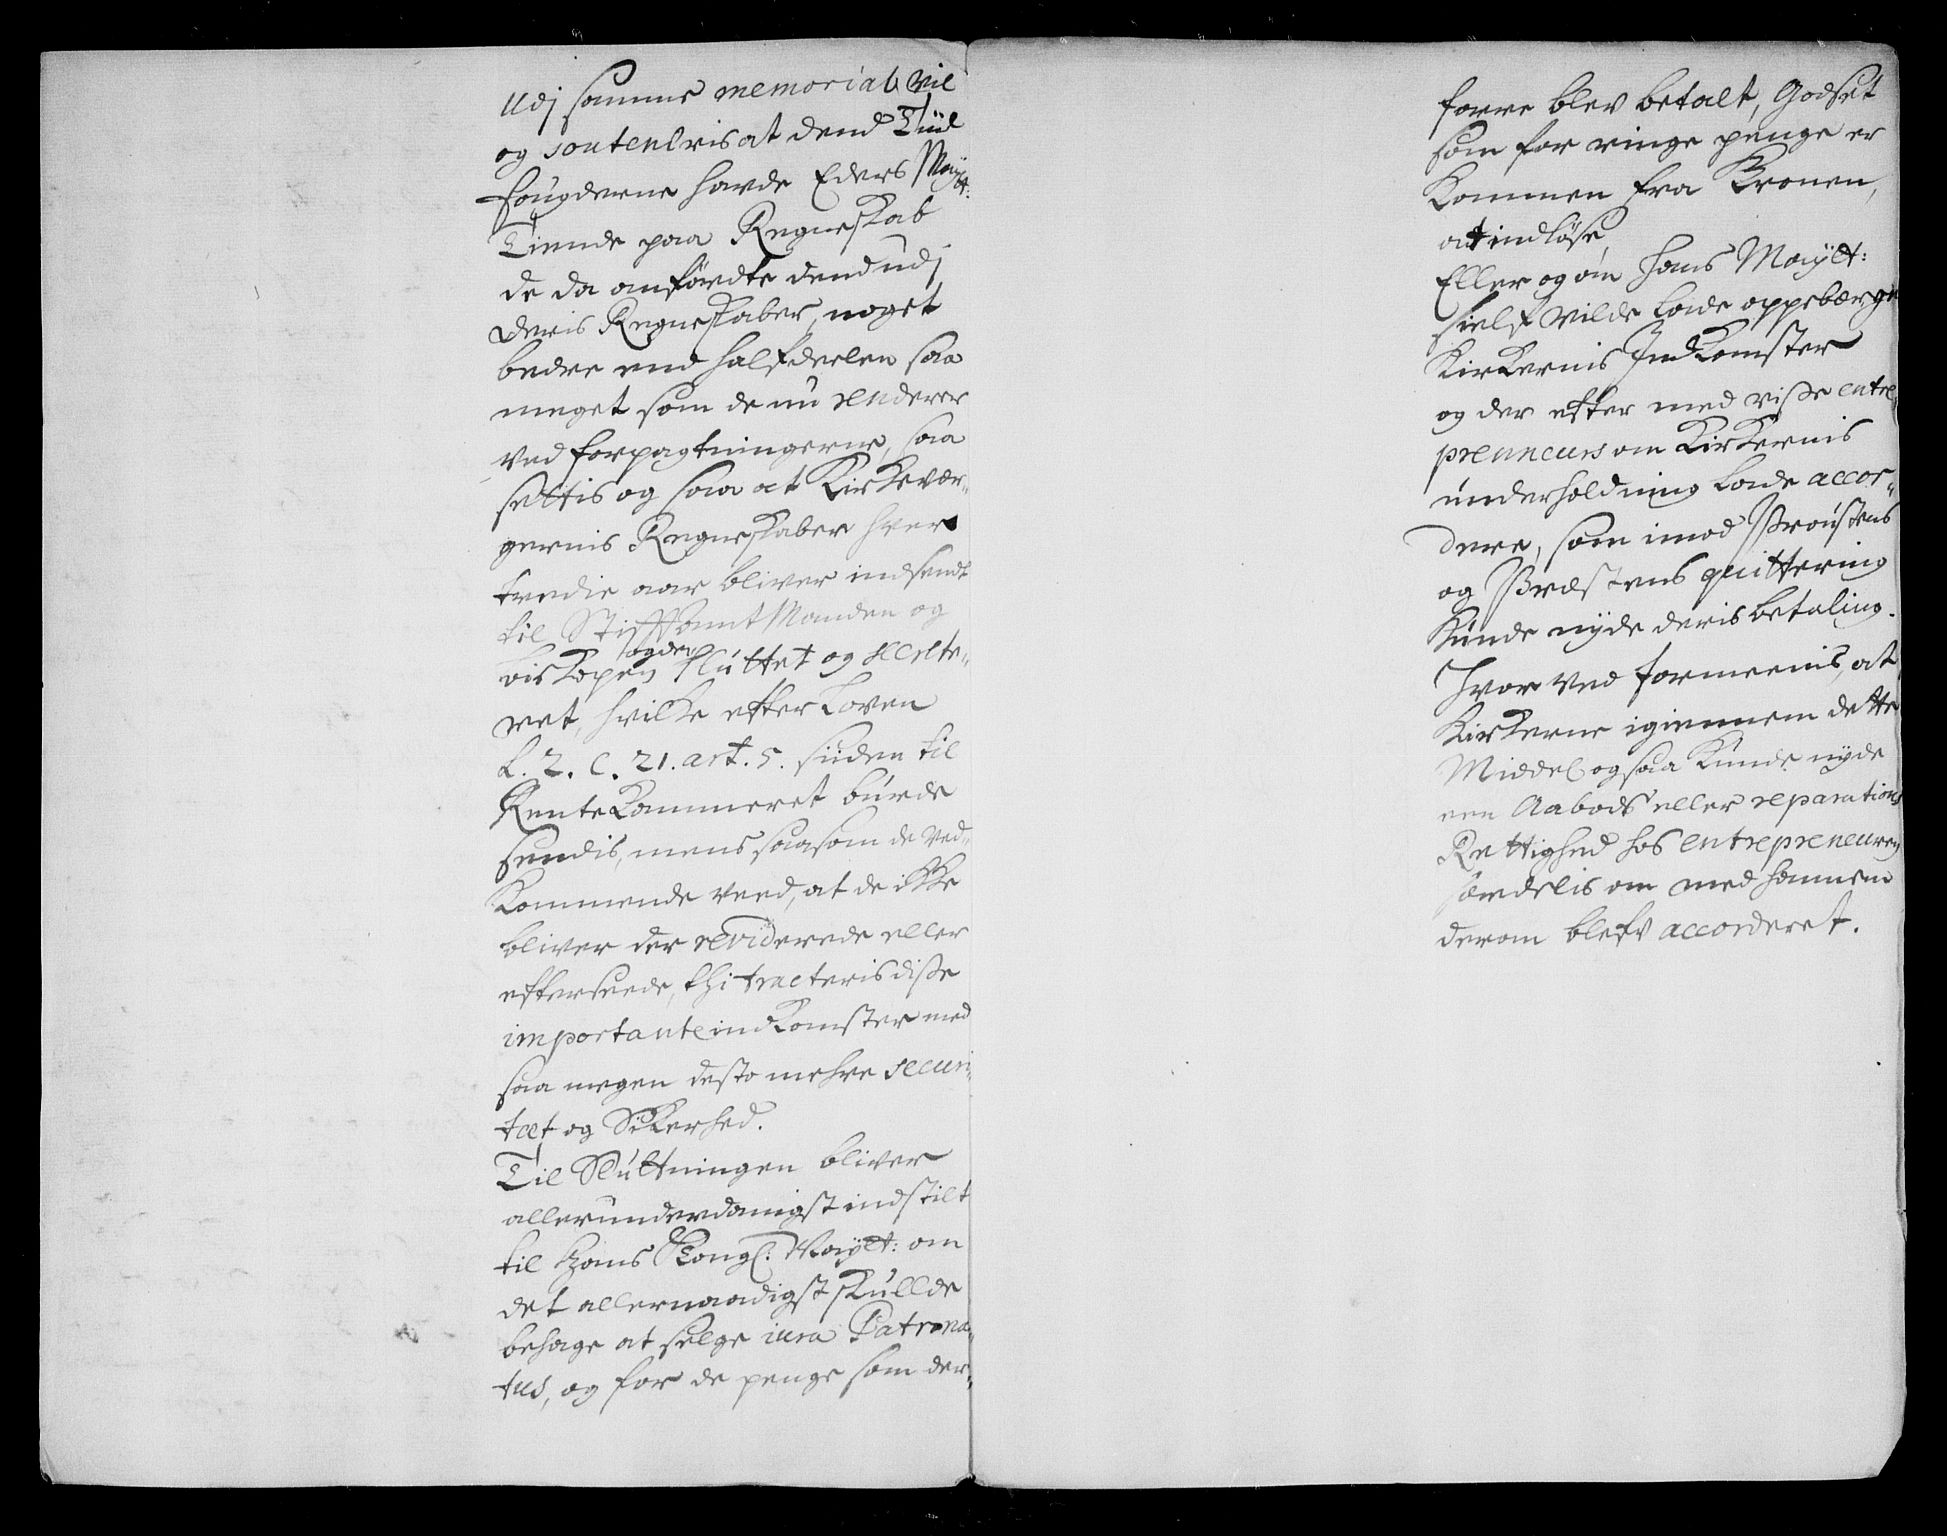 Udj samme memorial vil
og souteneris at dend Tiid
fougderne hafde Eders Mayt:
Tiende paa Regneskab
de da anførdte dend udj
deris Regneskaber, noget
bedre end halfdeelen saa
meget som de nu renderer
ved forpagtningerne, saa
settis og saa at Kirkevær-
gernis Regneskaber hver
tredie aar bliver indsendt
til StifftAmtManden og
biskopen og der sluttet og decite-
ret, hvilke efter Loven
L. 2. C. 21. art. 5. siiden til
RenteKammeret burde
sendis, mens saasom de ved-
kommende veed, at de ikke
bliver der reviderede eller
efterseede, thi tracteris disse
importante indkomster med
saa megen desto mehre securi-
tæt og Sikerhed.
Til Sluttningen bliver
allerunderdanigst indstilt
til Hans Kongl: Mayt: om
det allernaadigst skullde
behage at selge iura Patrona-
tus, og for de penge som der-
forre blev betalt, Godset
som for ringe penge er
kommen fra Kronen,
at indløse,
Eller og om Hans Maytt:
sielf vilde lade oppebærge
Kirkernis Indkomster
og der efter med visse entre-
prenneurs om Kirkernis
underholdning lade accor-
dere, som imod Proustens
og Præstens quittering
kunde nyde deris betaling.
Hvor ved formeenis, at
Kirkerne igiennem dette
Middel og saa kunde nyde
een Aabods eller reparations
Rettighed hos entrepreneuren
særdelis om med hannem
derom blefv accorderet.